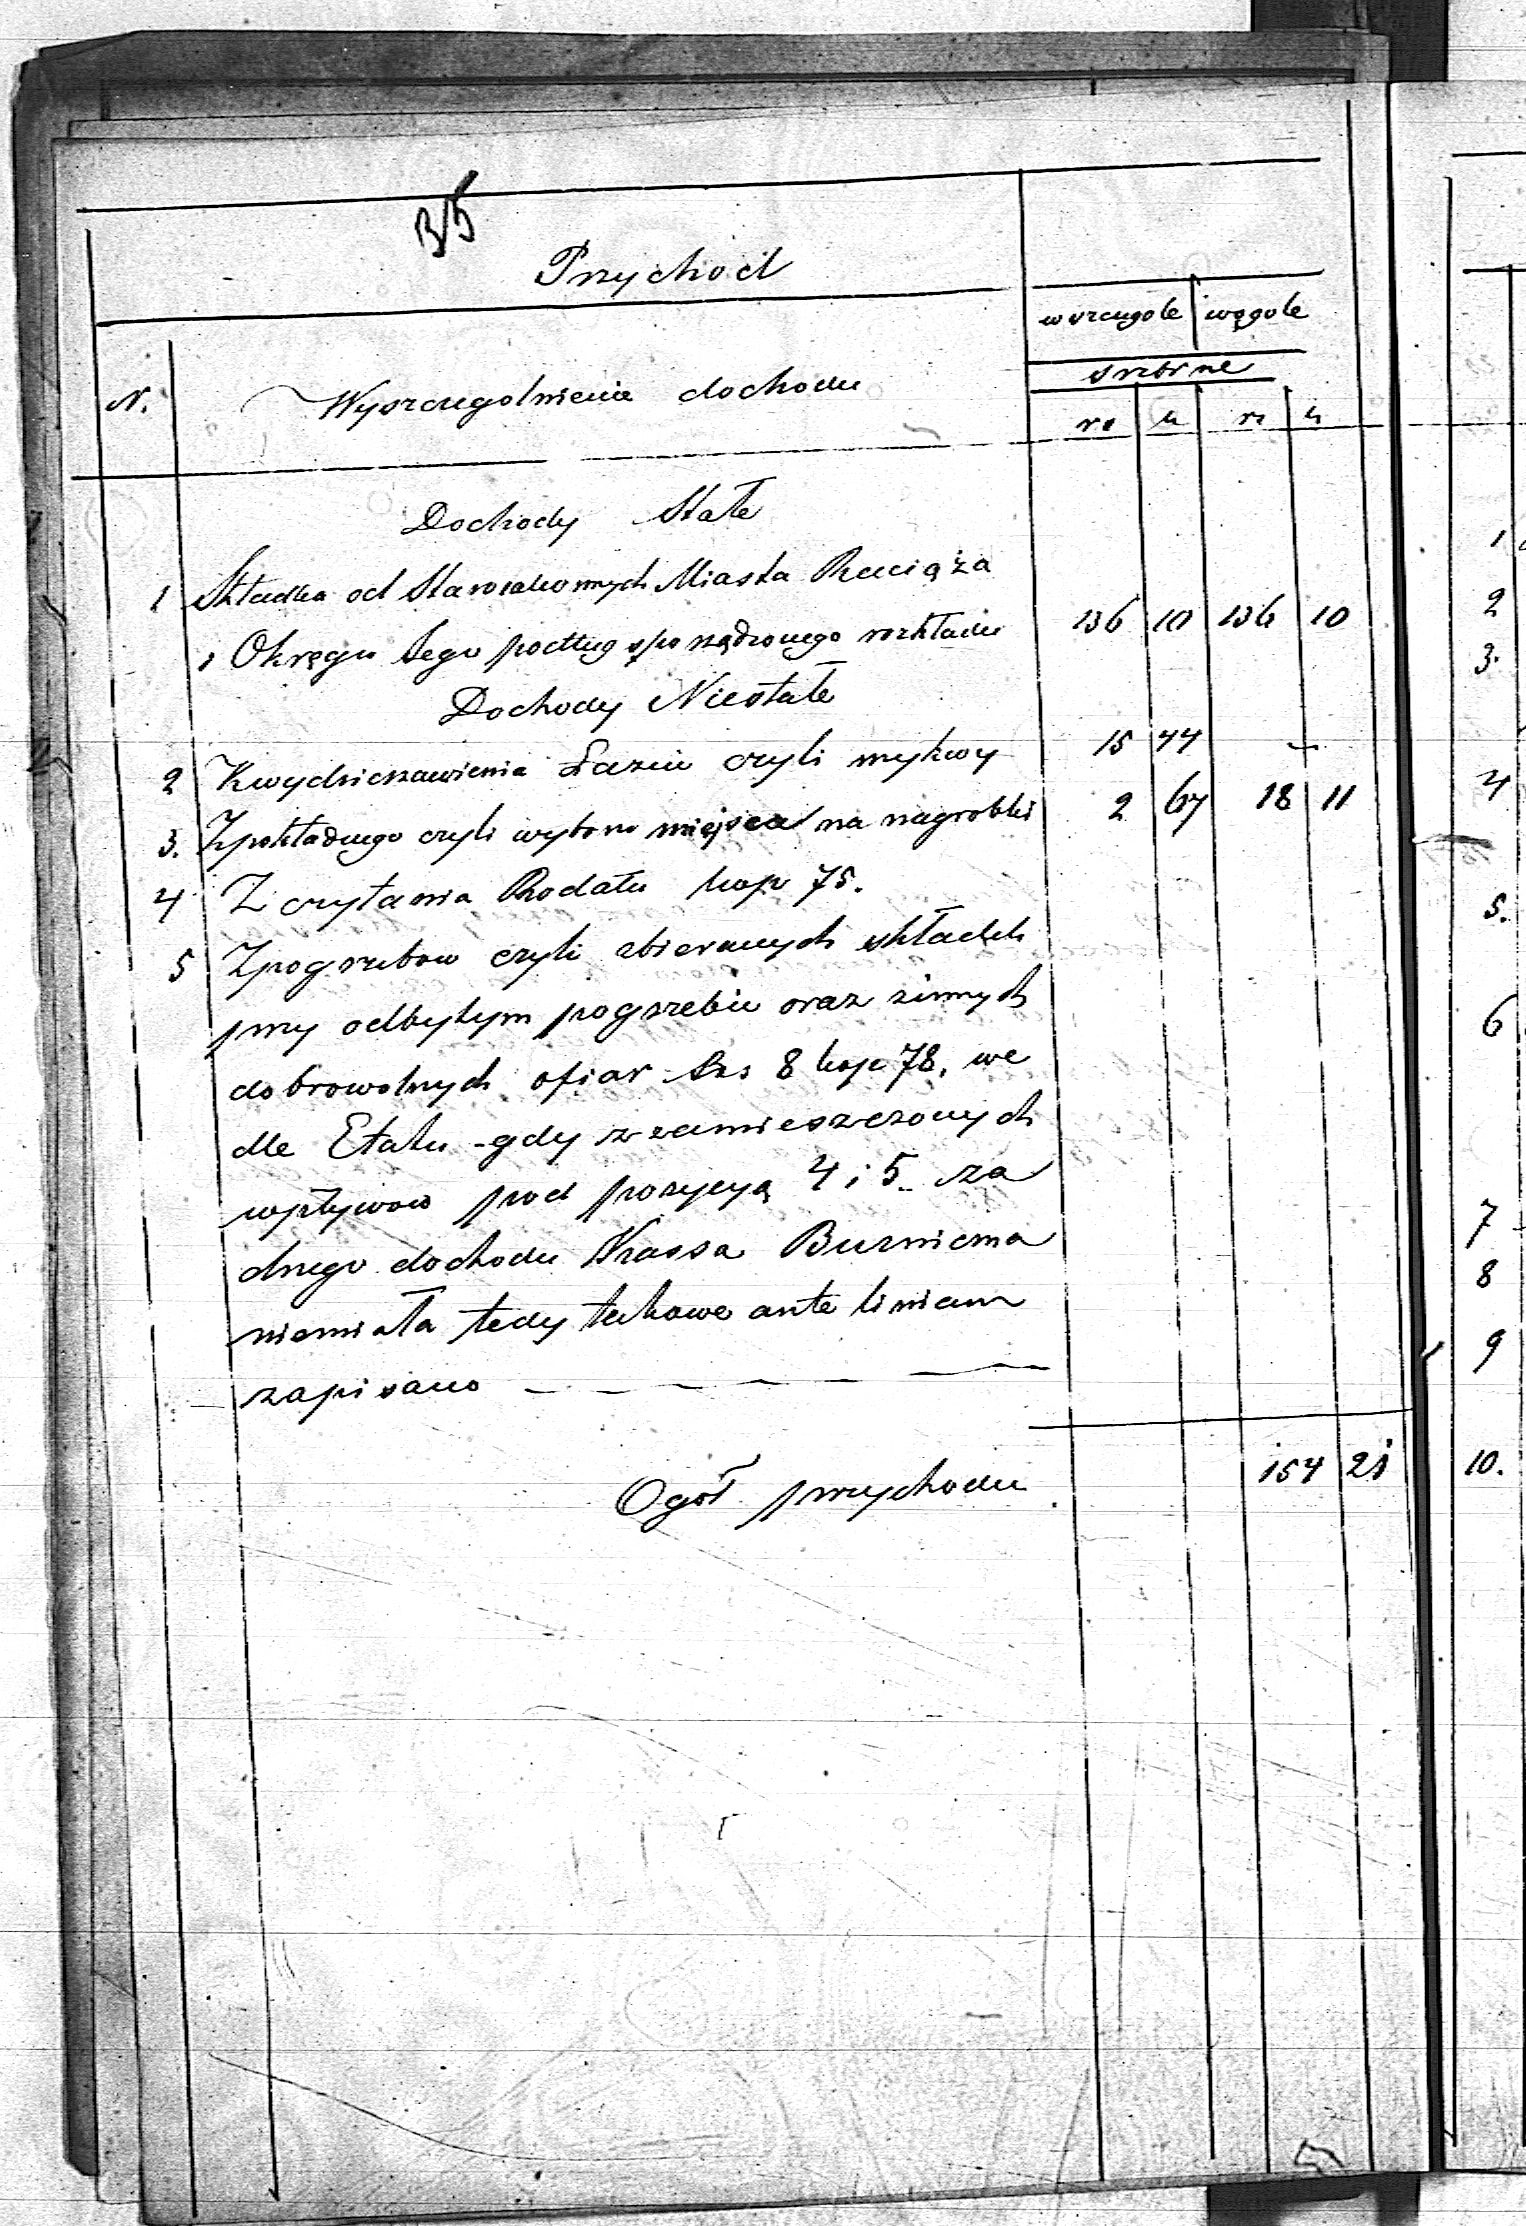 35
Przychod
w szczegole wogole
srebrne
N. Wyszczegolnienie dochodu
rs k rs k
Dochody Stałe
1 Składka od Starozakonnych Miasta Raciąża
i Okręgu tego podług sporządzonego rozkładu 136 10 136 10
Dochody Niestałe
2 Z wydzierzawienia Łazni czyli mykwy 15 44 -
3. Z pokładnego czyli wyboru miejsca na nagrobki 2 67 18 11
4 Z czytania Rodału kop 75.
5 Z pogrzebow czyli zbieranych składek
przy odbytym pogrzebie oraz innych
dobrowolnych ofiar Rs 8 kop 78. we
dle Etatu gdy z zamieszczonych
wpływow pod pozycyą 4 i 5 ża
dnego dochodu Kassa Buznicna
niemiała tedy takowe ante liniam
zapisano
Ogół przychodu 154 21
1
2
3.
4
5.
6
7
8
9
10.